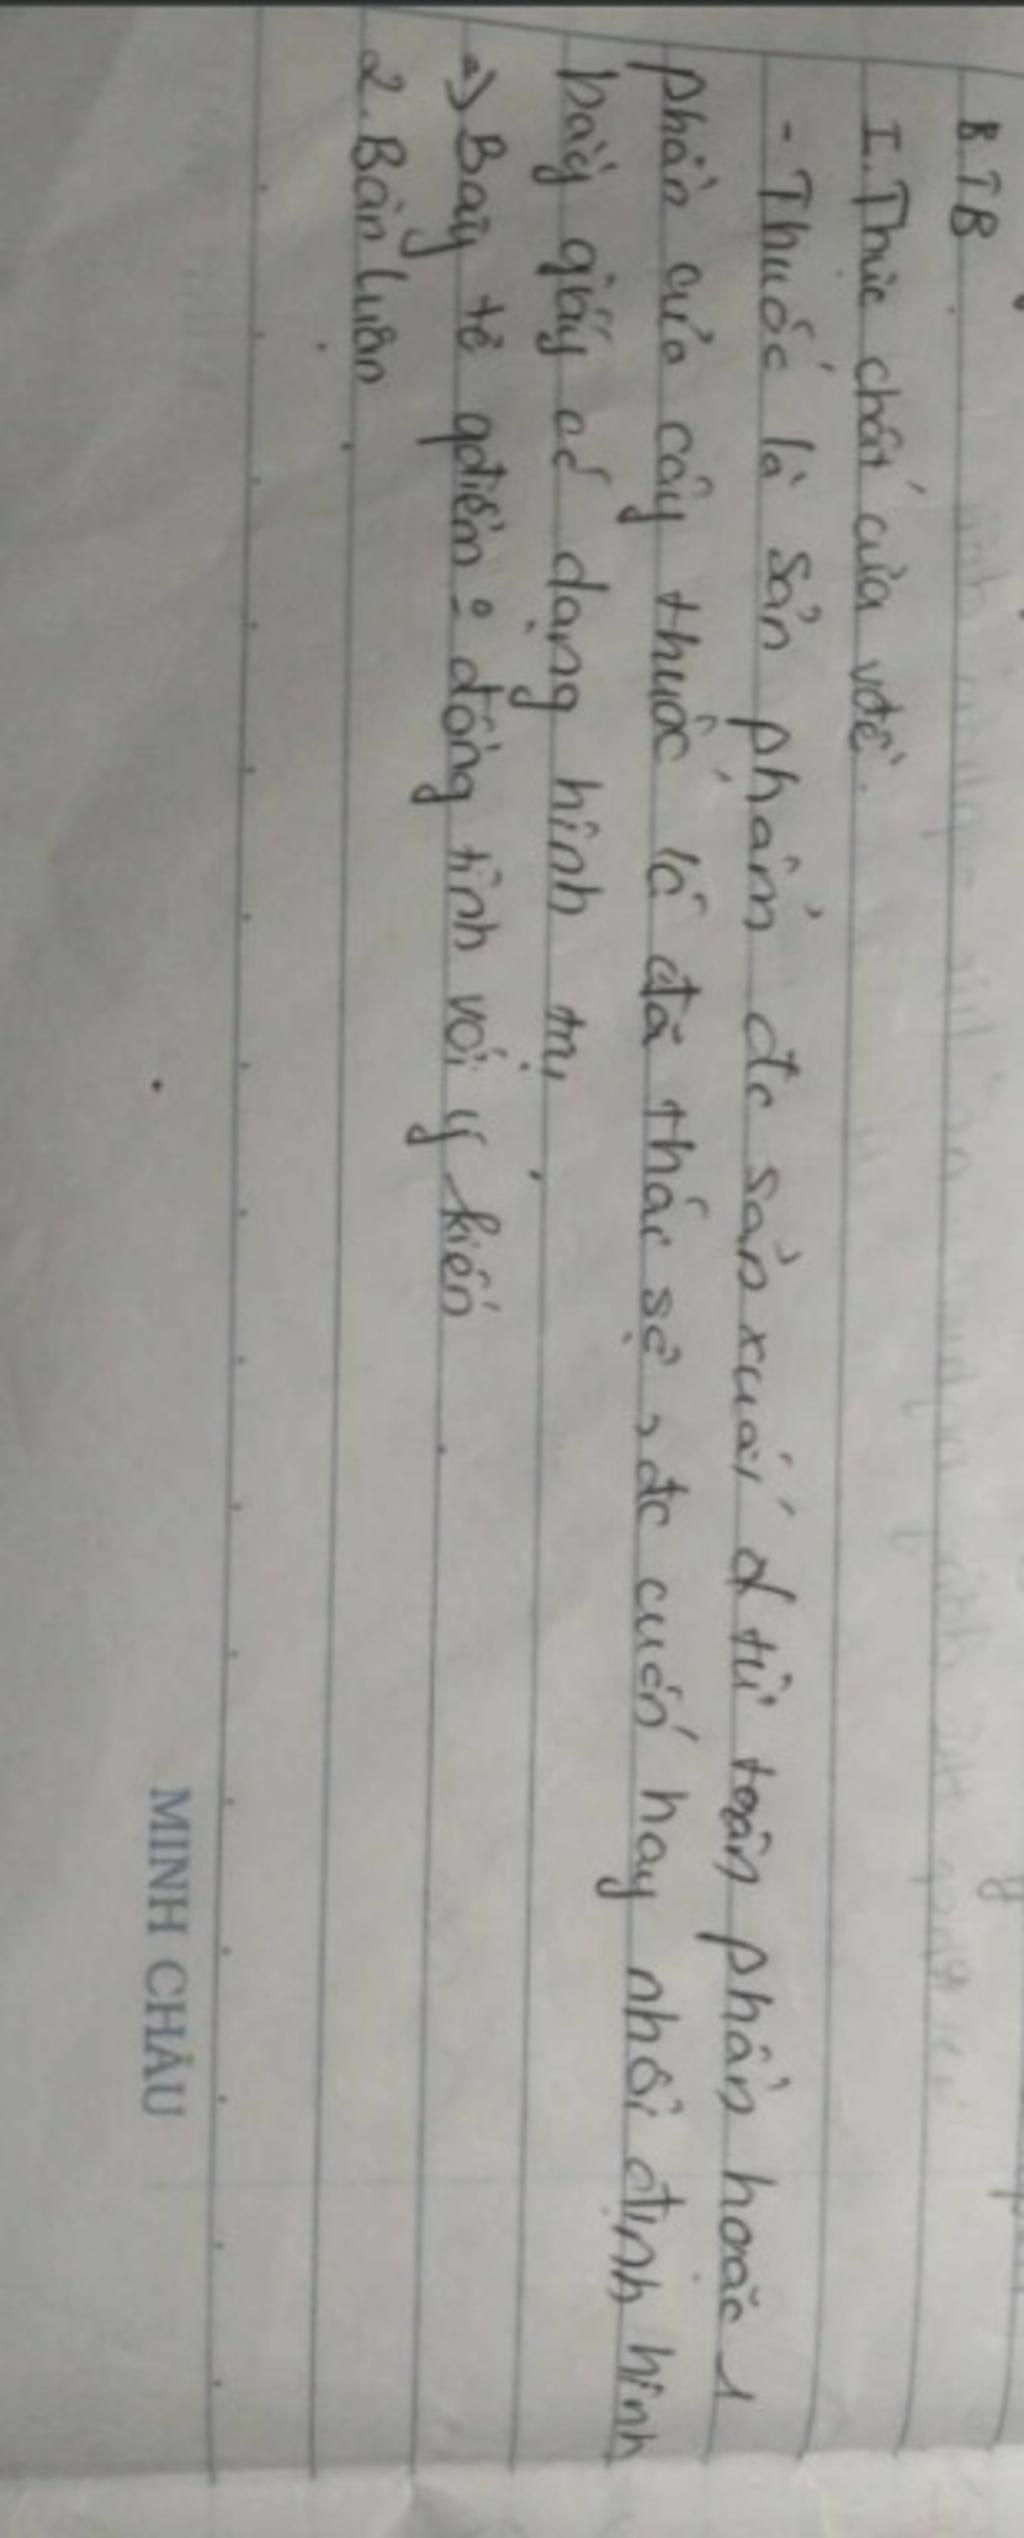 B. TB
I. Thực chất của vđề.
- Thuốc là sản phẩm đc sản xuất từ toàn phần hoặc 1
phần của cây thuốc lá đã thác sẻ, đc cuốn hay nhồi định hình
bằng giấy có dạng hình trụ.
a) Bày tỏ qđiểm: đồng tình với ý kiến
2. Bàn luận
MINH CHÂU